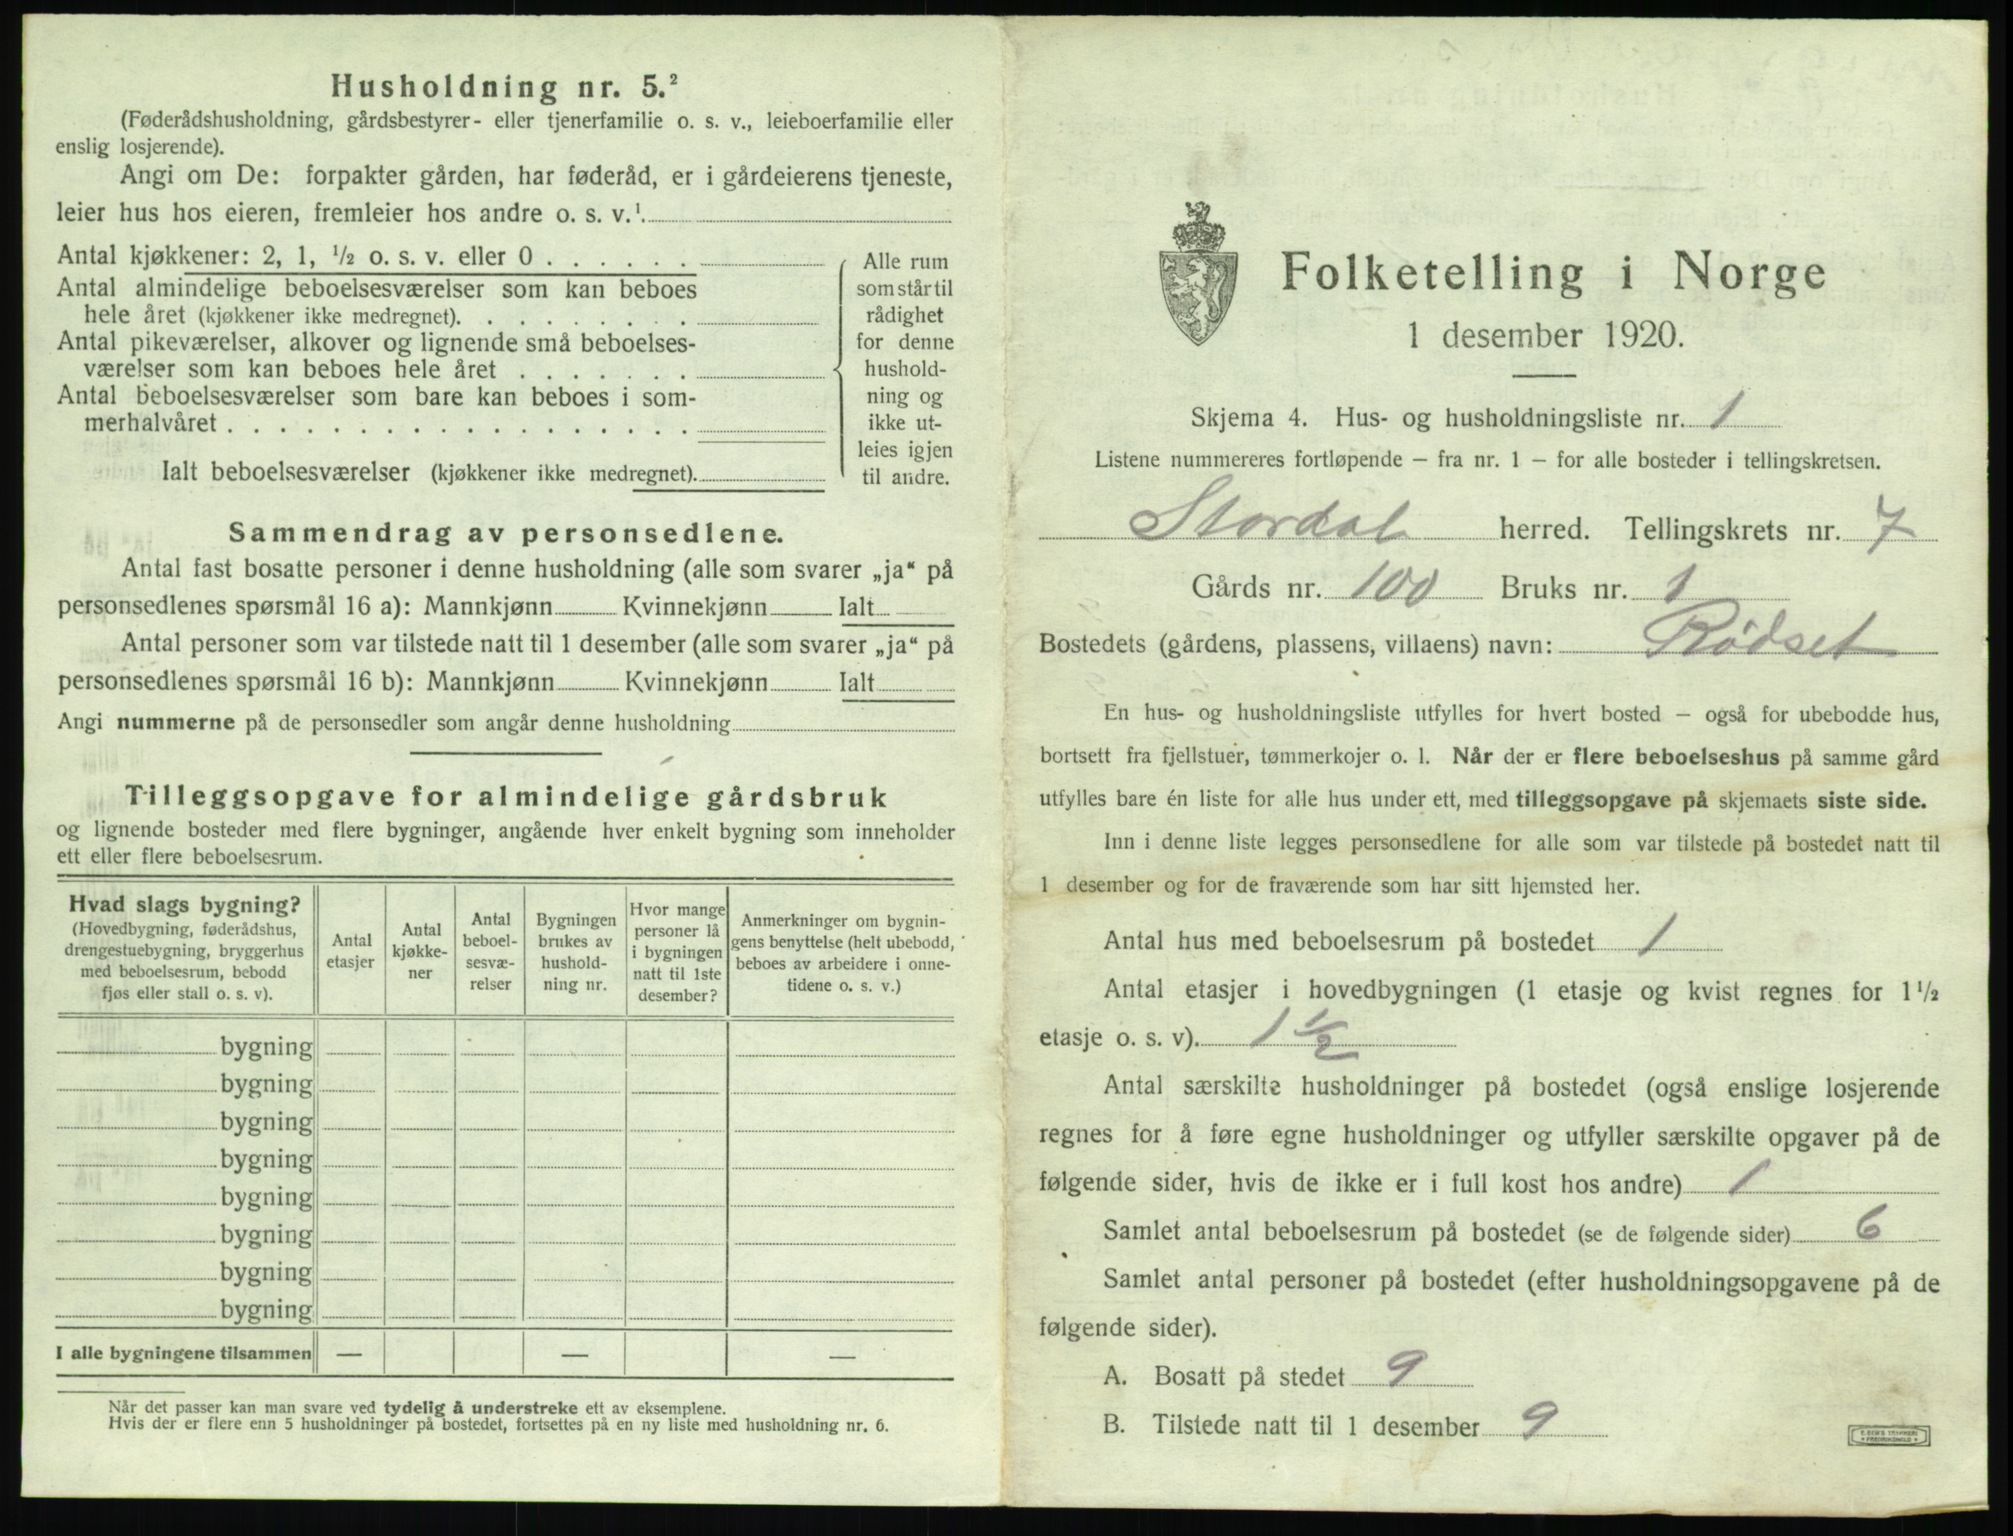 Husholdning nr. 5.²
(Føderådshusholdning, gårdsbestyrer- eller tjenerfamilie o. s. v., leieboerfamilie eller
enslig losjerende).
Angi om De: forpakter gården, har føderåd, er i gårdeierens tjeneste,
leier hus hos eieren, fremleier hos andre o. s. v.¹
Antal kjøkkener: 2, 1, ½ o. s. v. eller 0 . . . . . .
Antal almindelige beboelsesværelser som kan beboes
hele året (kjøkkener ikke medregnet). . . . . . . . .
Antal pikeværelser, alkover og lignende små beboelses-
værelser som kan beboes hele året . . . . . . .
Antal beboelsesværelser som bare kan beboes i som-
merhalvåret . . . . . . . . . . . . . . . . . .
Ialt beboelsesværelser (kjøkkener ikke medregnet).
Alle rum
som står til
rådighet
for denne
hushold-
ning og
ikke ut-
leies igjen
til andre.
Sammendrag av personsedlene.
Antal fast bosatte personer i denne husholdning (alle som svarer „ja“ på
personsedlenes spørsmål 16 a): Mannkjønn Kvinnekjønn Ialt
Antal personer som var tilstede natt til 1 desember (alle som svarer „ja“ på
personsedlenes spørsmål 16 b): Mannkjønn Kvinnekjønn Ialt
Angi nummerne på de personsedler som angår denne husholdning
Tilleggsopgave for almindelige gårdsbruk
og lignende bosteder med flere bygninger, angående hver enkelt bygning som inneholder
ett eller flere beboelsesrum.
Hvad slags bygning?
(Hovedbygning, føderådshus,
drengestuebygning, bryggerhus
med beboelsesrum, bebodd
fjøs eller stall o. s. v).
Antal
etasjer
Antal
kjøkke-
ner
Antal
beboel-
sesvæ-
relser
Bygningen
brukes av
hushold-
ning nr.
Hvor mange
personer lå
i bygningen
natt til 1ste
desember?
Anmerkninger om bygnin-
gens benyttelse (helt ubebodd,
beboes av arbeidere i onne-
tidene o. s. v.)
bygning
bygning
bygning
bygning
bygning
bygning
bygning
bygning
I alle bygningene tilsammen — — —
Når det passer kan man svare ved tydelig å understreke ett av eksemplene.
Hvis der er flere enn 5 husholdninger på bostedet, fortsettes på en ny liste med husholdning nr. 6.
Folketelling i Norge
1 desember 1920.
Skjema 4. Hus- og husholdningsliste nr. 1
Listene nummereres fortløpende — fra nr. 1 — for alle bosteder i tellingskretsen.
Stordal herred. Tellingskrets nr. 7
Gårds nr. 100 Bruks nr. 1
Bostedets (gårdens, plassens, villaens) navn: Rödset
En hus- og husholdningsliste utfylles for hvert bosted — også for ubebodde hus,
bortsett fra fjellstuer, tømmerkojer o. l. Når der er flere beboelseshus på samme gård
utfylles bare én liste for alle hus under ett, med tilleggsopgave på skjemaets siste side.
Inn i denne liste legges personsedlene for alle som var tilstede på bostedet natt til
1 desember og for de fraværende som har sitt hjemsted her.
Antal hus med beboelsesrum på bostedet 1
Antal etasjer i hovedbygningen (1 etasje og kvist regnes for 1½
etasje o. s. v). 1½
Antal særskilte husholdninger på bostedet (også enslige losjerende
regnes for å føre egne husholdninger og utfyller særskilte opgaver på de
følgende sider, hvis de ikke er i full kost hos andre) 1
Samlet antal beboelsesrum på bostedet (se de følgende sider) 6
Samlet antal personer på bostedet (efter husholdningsopgavene på de
følgende sider).
A. Bosatt på stedet 9
B. Tilstede natt til 1 desember 9